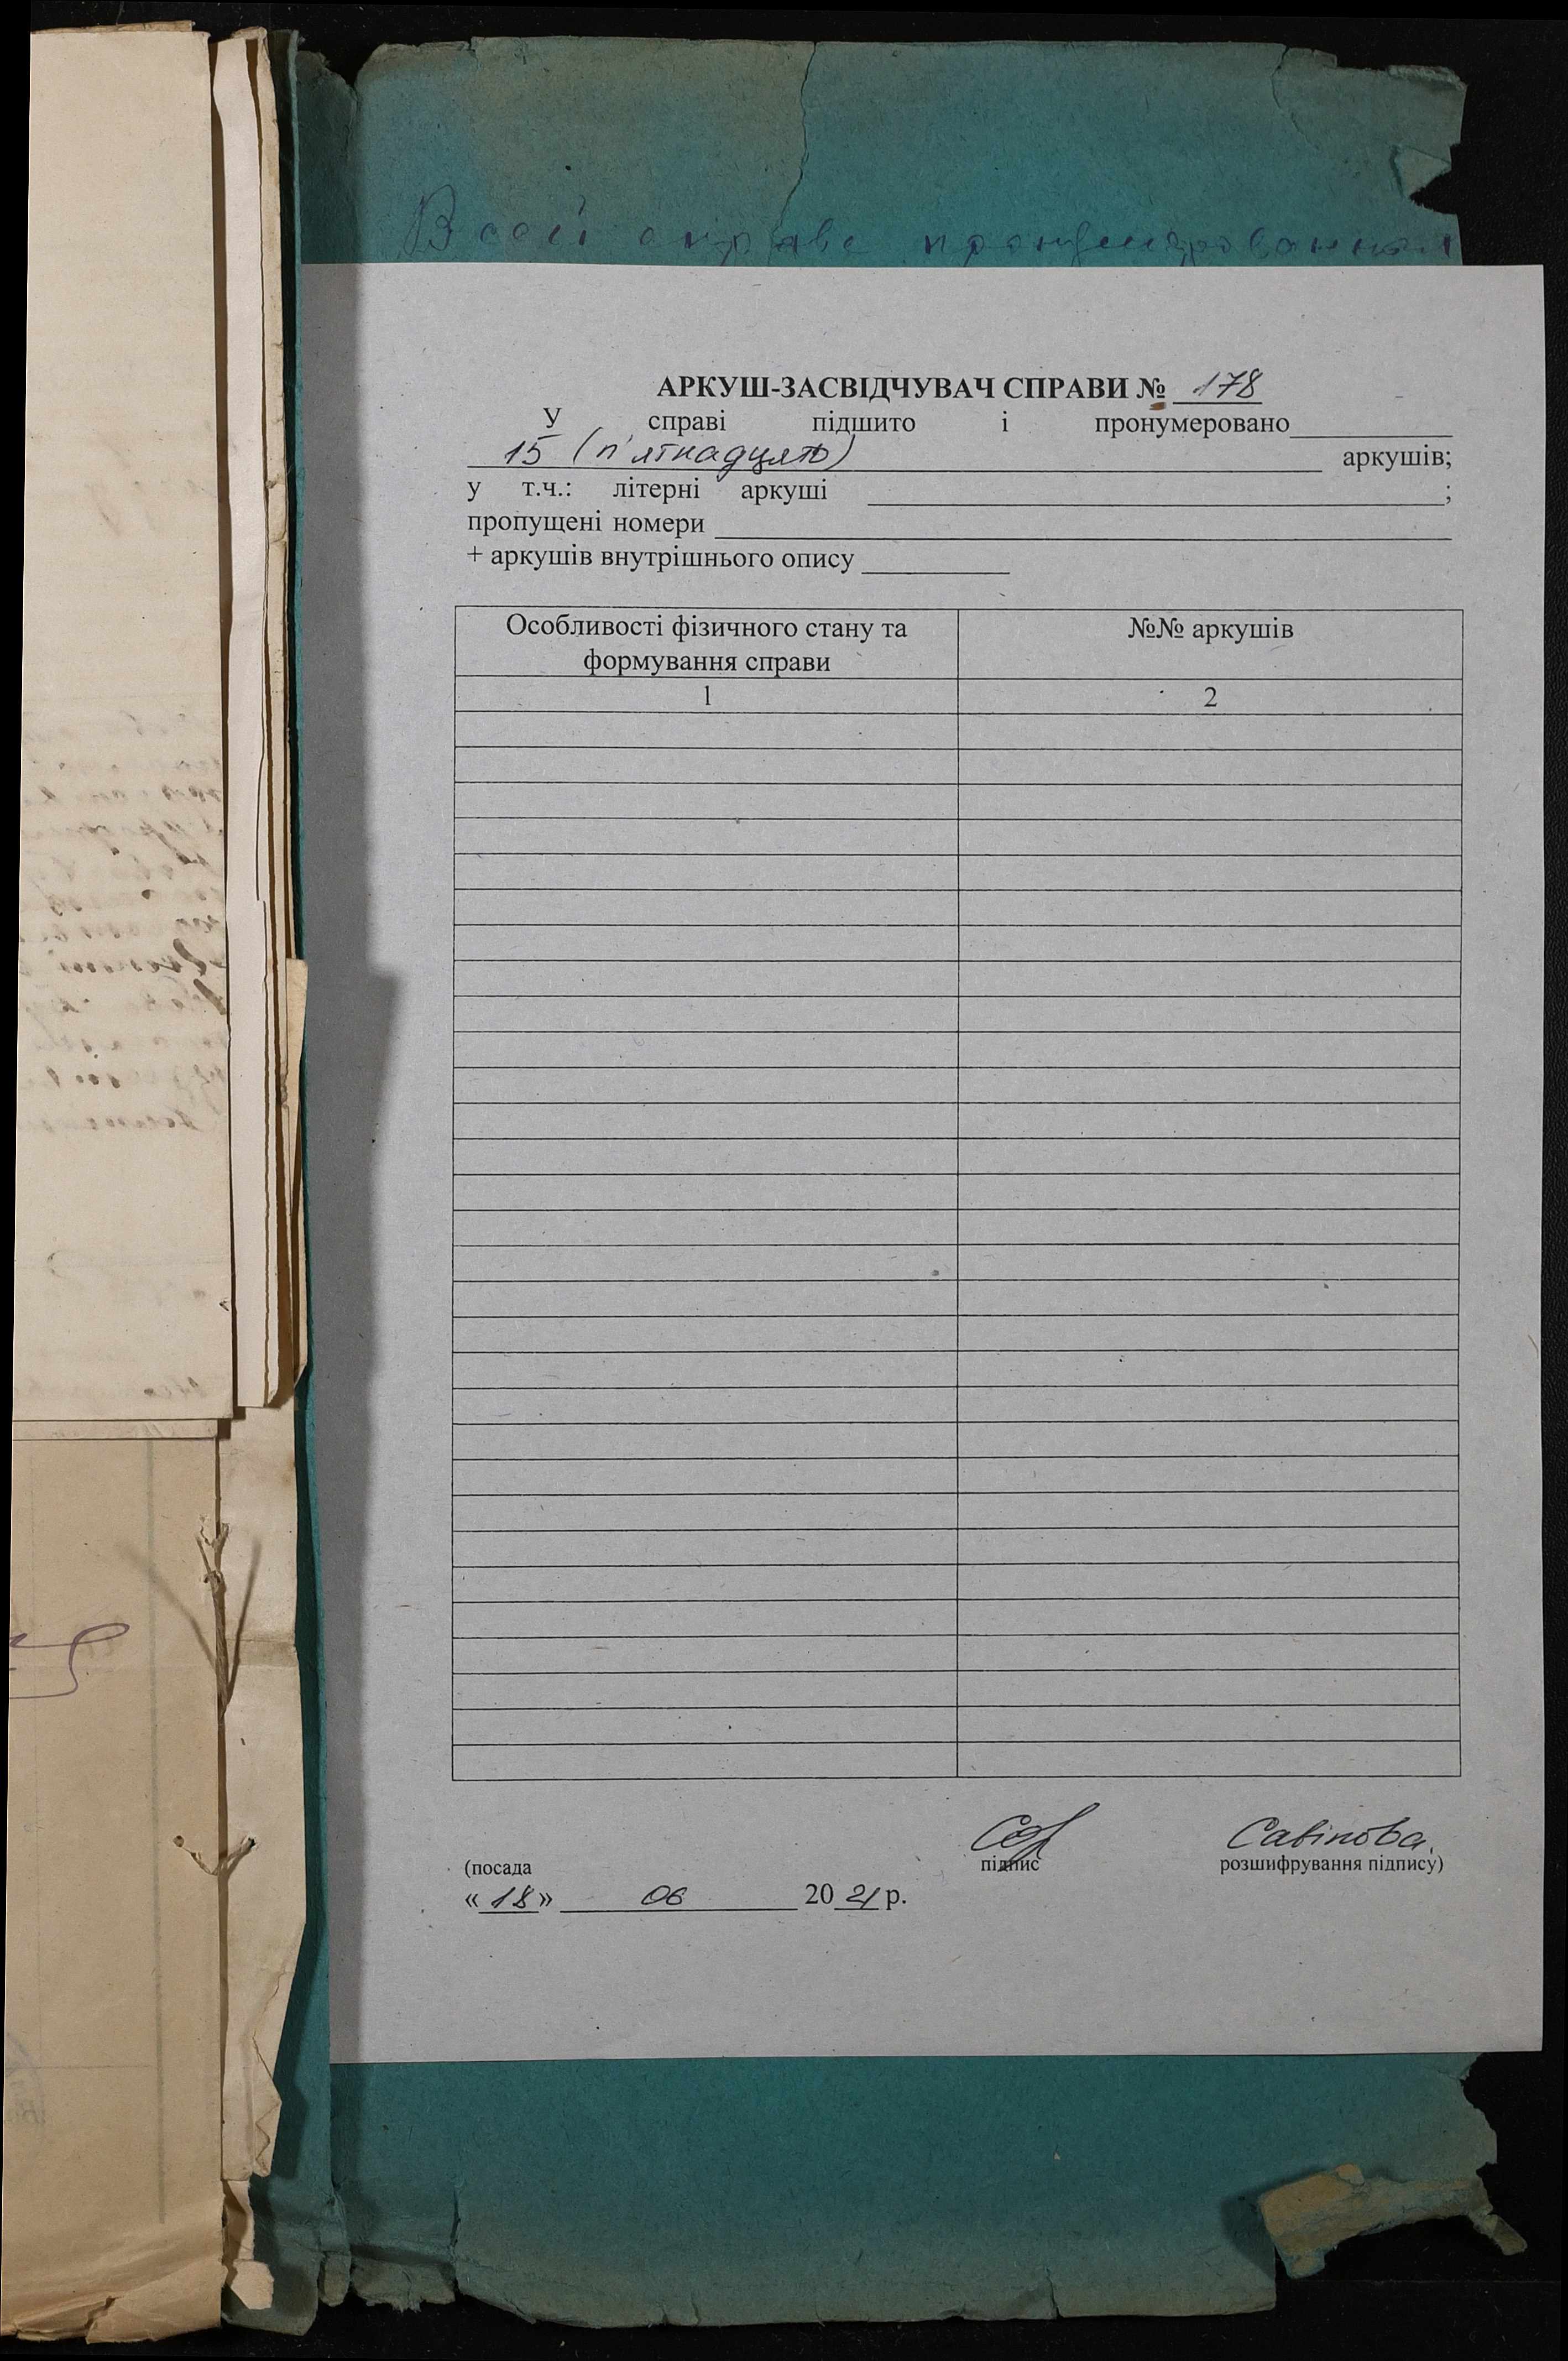 В сеей справе пронумерованных
АРКУШ-ЗАСВІДЧУВАЧ СПРАВИ № 178
У справі підшито і пронумеровано
15 (п'ятнадцять) аркушів;
у т.ч.: літерні аркуші ;
пропущені номери
+ аркушів внутрішнього опису
Особливості фізичного стану та формування справи
№№ аркушів
1
2
Савінова.
(посада
підпис
розшифрування підпису)
«18» 06 2021 р.